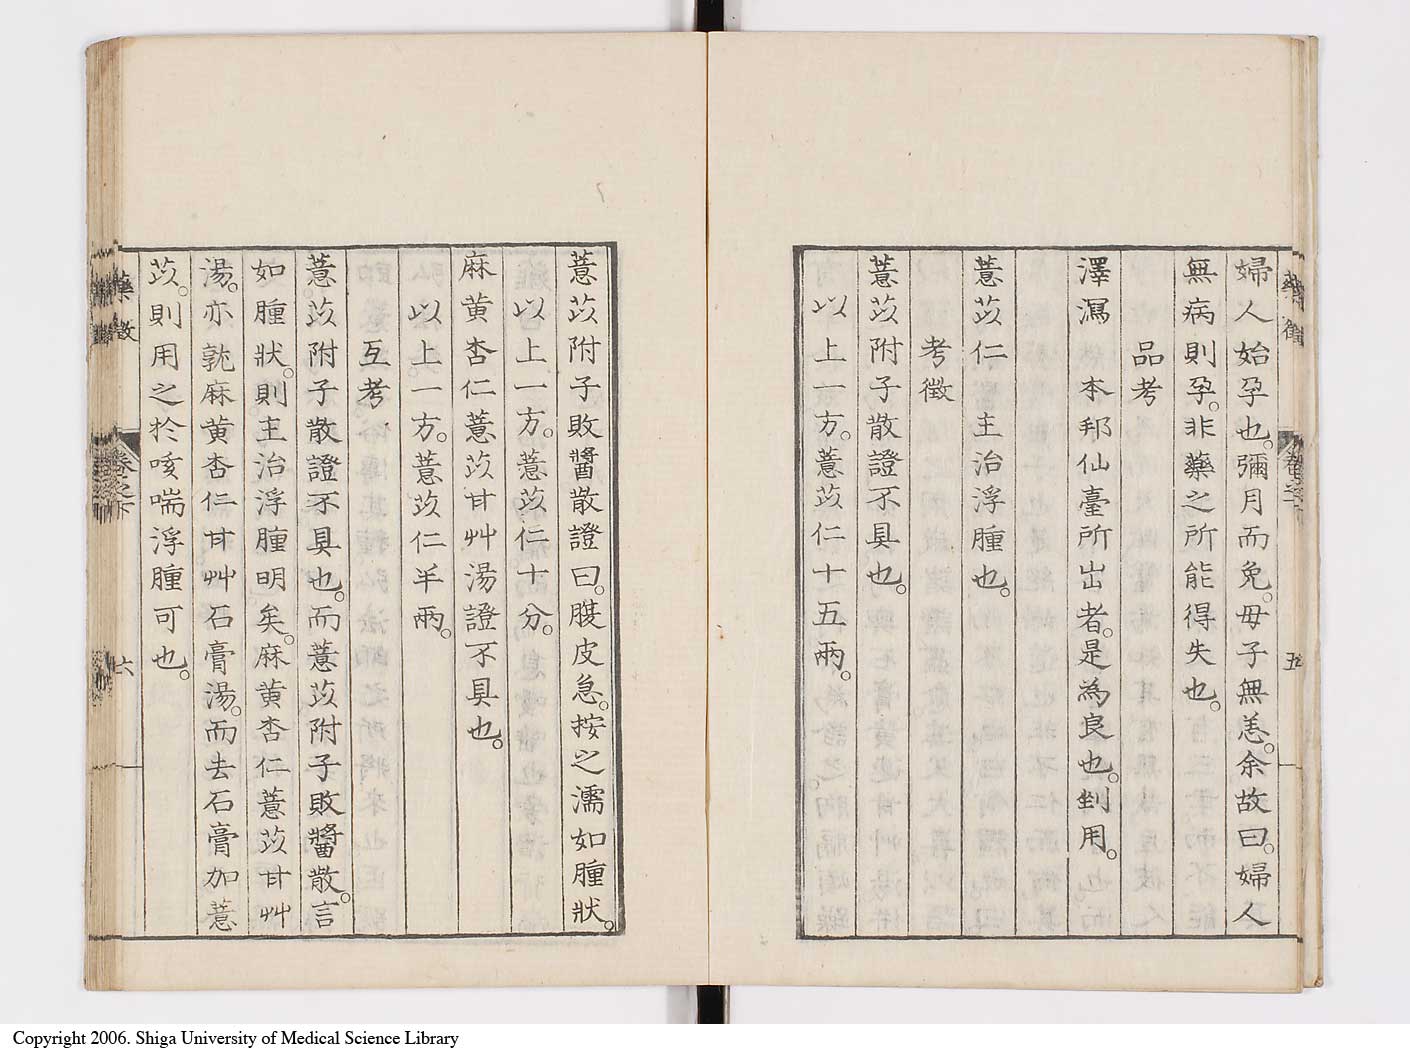 婦人始孕也。彌月而免。母子無恙。余故曰。婦人
無病則孕。非藥之所能得失也。
品考
澤瀉 本邦仙臺所出者。是為良也。剉用。
薏苡仁 主治浮腫也。
考徵
薏苡附子散證不具也。
以上一方。薏苡仁十五兩。
五
薏苡附子敗醬散證曰。腹皮急。按之濡如腫狀。
以上一方。薏苡仁十分。
麻黃杏仁薏苡甘艸湯證不具也。
以上一方。薏苡仁半兩。
互考
薏苡附子散證不具也。而薏苡附子敗醬散。言
如腫狀。則主治浮腫明矣。麻黃杏仁薏苡甘艸
湯。亦就麻黃杏仁甘艸石膏湯。而去石膏加薏
苡。則用之於咳喘浮腫可也。
藥徵 卷之下 六
Copyright 2006. Shiga University of Medical Science Library